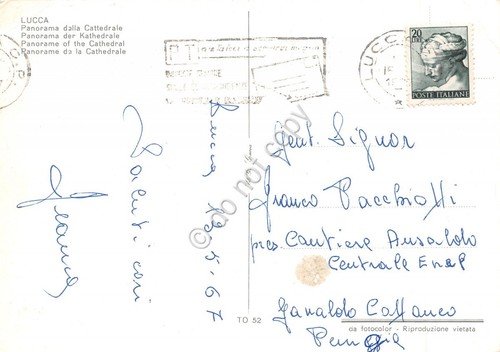 LUCCA
Panorama dalla Cattedrale
Panorama der Kathedrale
Panorame of the Cathedral
Panorame da la Cathedrale
PT
LUCCA
20
LIRE
POSTE ITALIANE
Lucca 19-5-67
Saluti cari
Franca
Gent. Signor
Franco Pacchiotti
pres. Cantiere Ansaldo
Centrale Enel
Perugia
TO 52
da fotocolor - Riproduzione vietata
do not copy